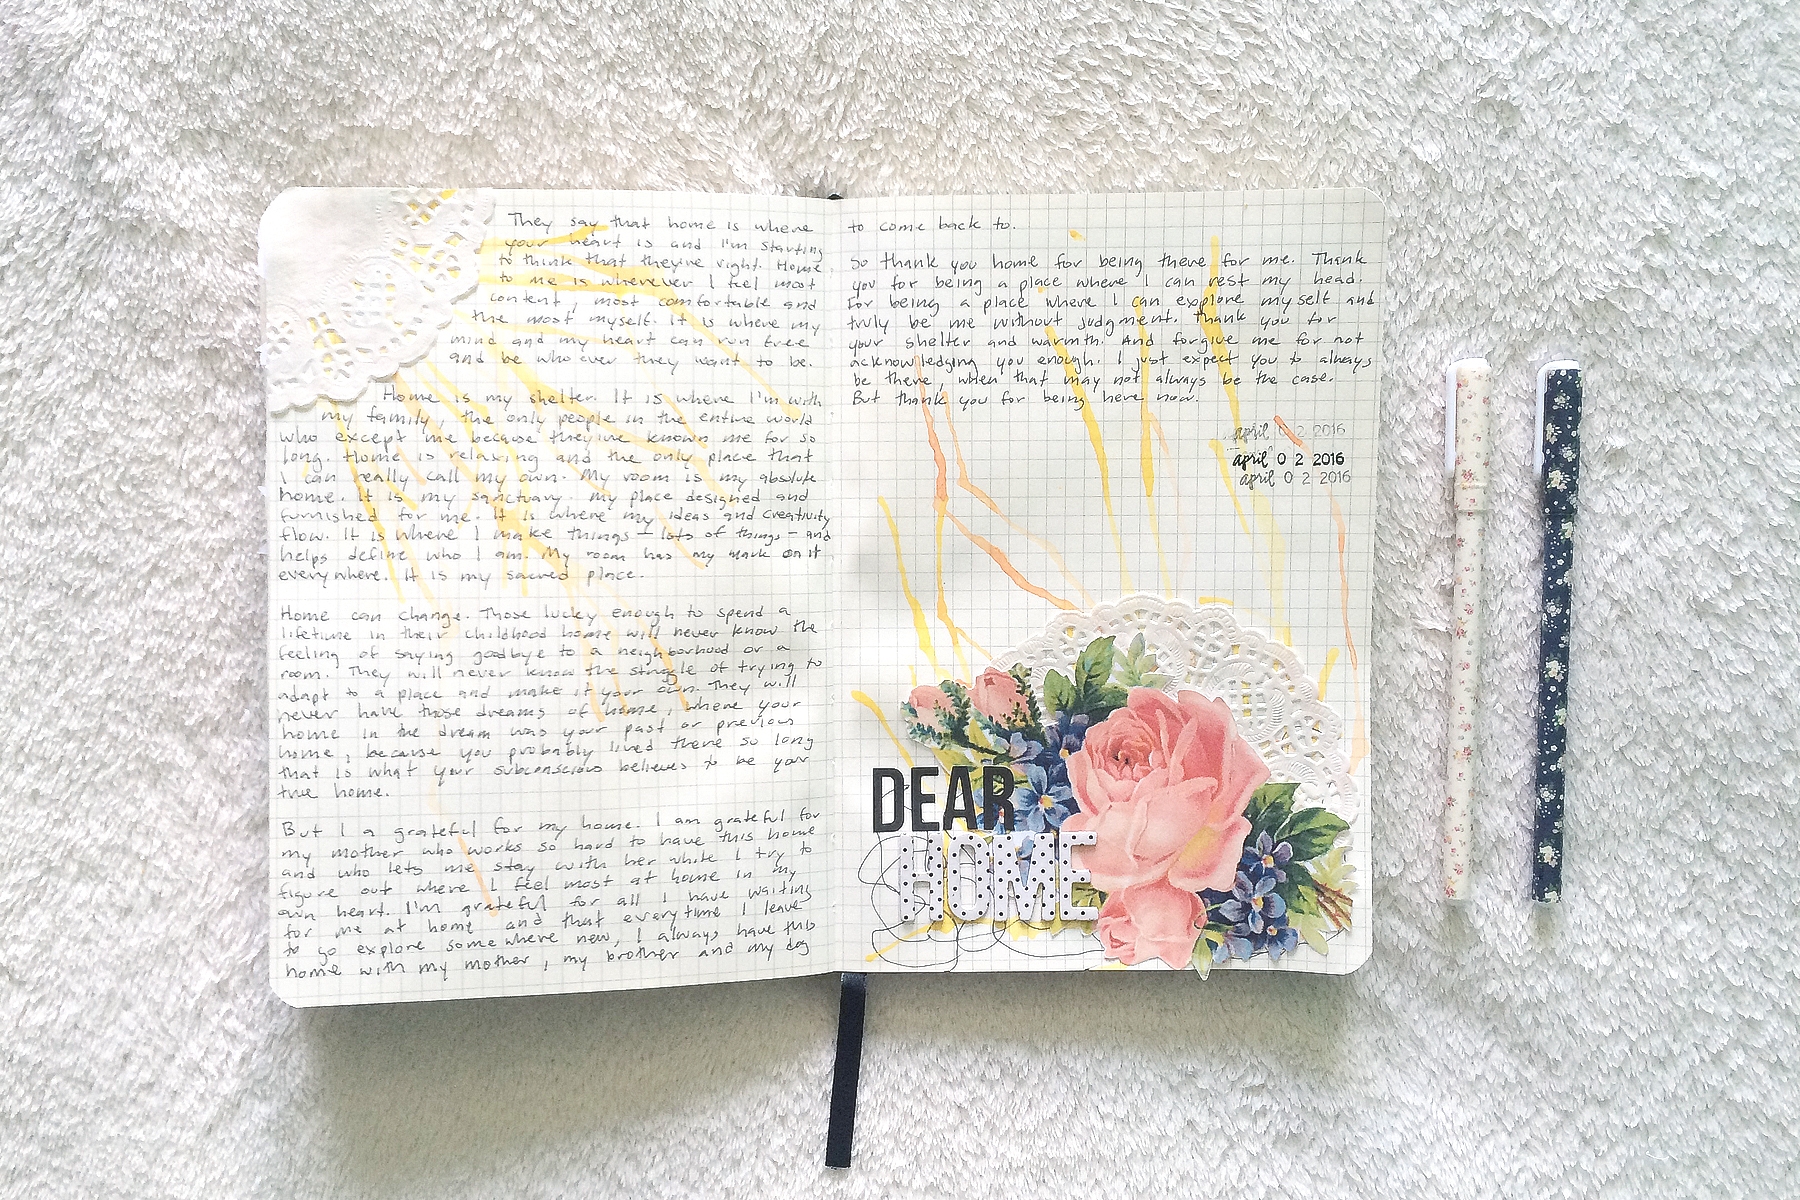 They say that home is where
your heart is and I'm starting
to think that they're right. Home
to me is wherever I feel most
content, most comfortable and
the most myself. It is where my
mind and my heart can run free
and be whoever they want to be.
Home is my shelter. It is where I'm with
my family, the only people in the entire world
who except me because they've known me for so
long. Home is relaxing and the only place that
I can really call my own. My room is my absolute
home. It is my sanctuary. My place designed and
furnished for me. It is where my ideas and creativity
flow. It is where I make things - lots of things - and
helps define who I am. My room has my mark on it
everywhere. It is my sacred place.
Home can change. Those lucky enough to spend a
lifetime in their childhood home will never know the
feeling of saying goodbye to a neighborhood or a
room. They will never know the struggle of trying to
adapt to a place and make it your own. They will
never have those dreams of home, where your
home in the dream was your past or previous
home, because you probably lived there so long
that is what your subconscious believes to be your
true home.
But I a grateful for my home. I am grateful for
my mother who works so hard to have this home
and who lets me stay with her while I try to
figure out where I feel most at home in my
own heart. I'm grateful for all I have waiting
for me at home and that everytime I leave
to go explore somewhere new, I always have this
home with my mother, my brother and my dog
to come back to.
So thank you home for being there for me. Thank
you for being a place where I can rest my head.
For being a place where I can explore myself and
truly be me without judgment. Thank you for
your shelter and warmth. And forgive me for not
acknowledging you enough. I just expect you to always
be there, when that may not always be the case.
But thank you for being here now.
april 0 2 2016
april 0 2 2016
april 0 2 2016
DEAR
HOME